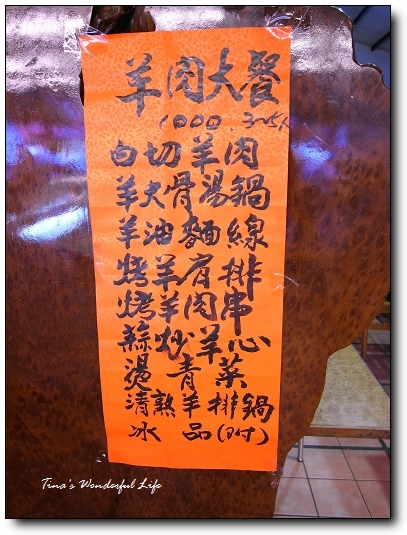 羊肉大餐
1000. 3~5人
白切羊肉
羊大骨湯鍋
羊油麵線
烤羊肩排
烤羊肉串
蒜炒羊心
燙青菜
清熟羊排鍋
冰品(附)
Tina's Wonderful Life